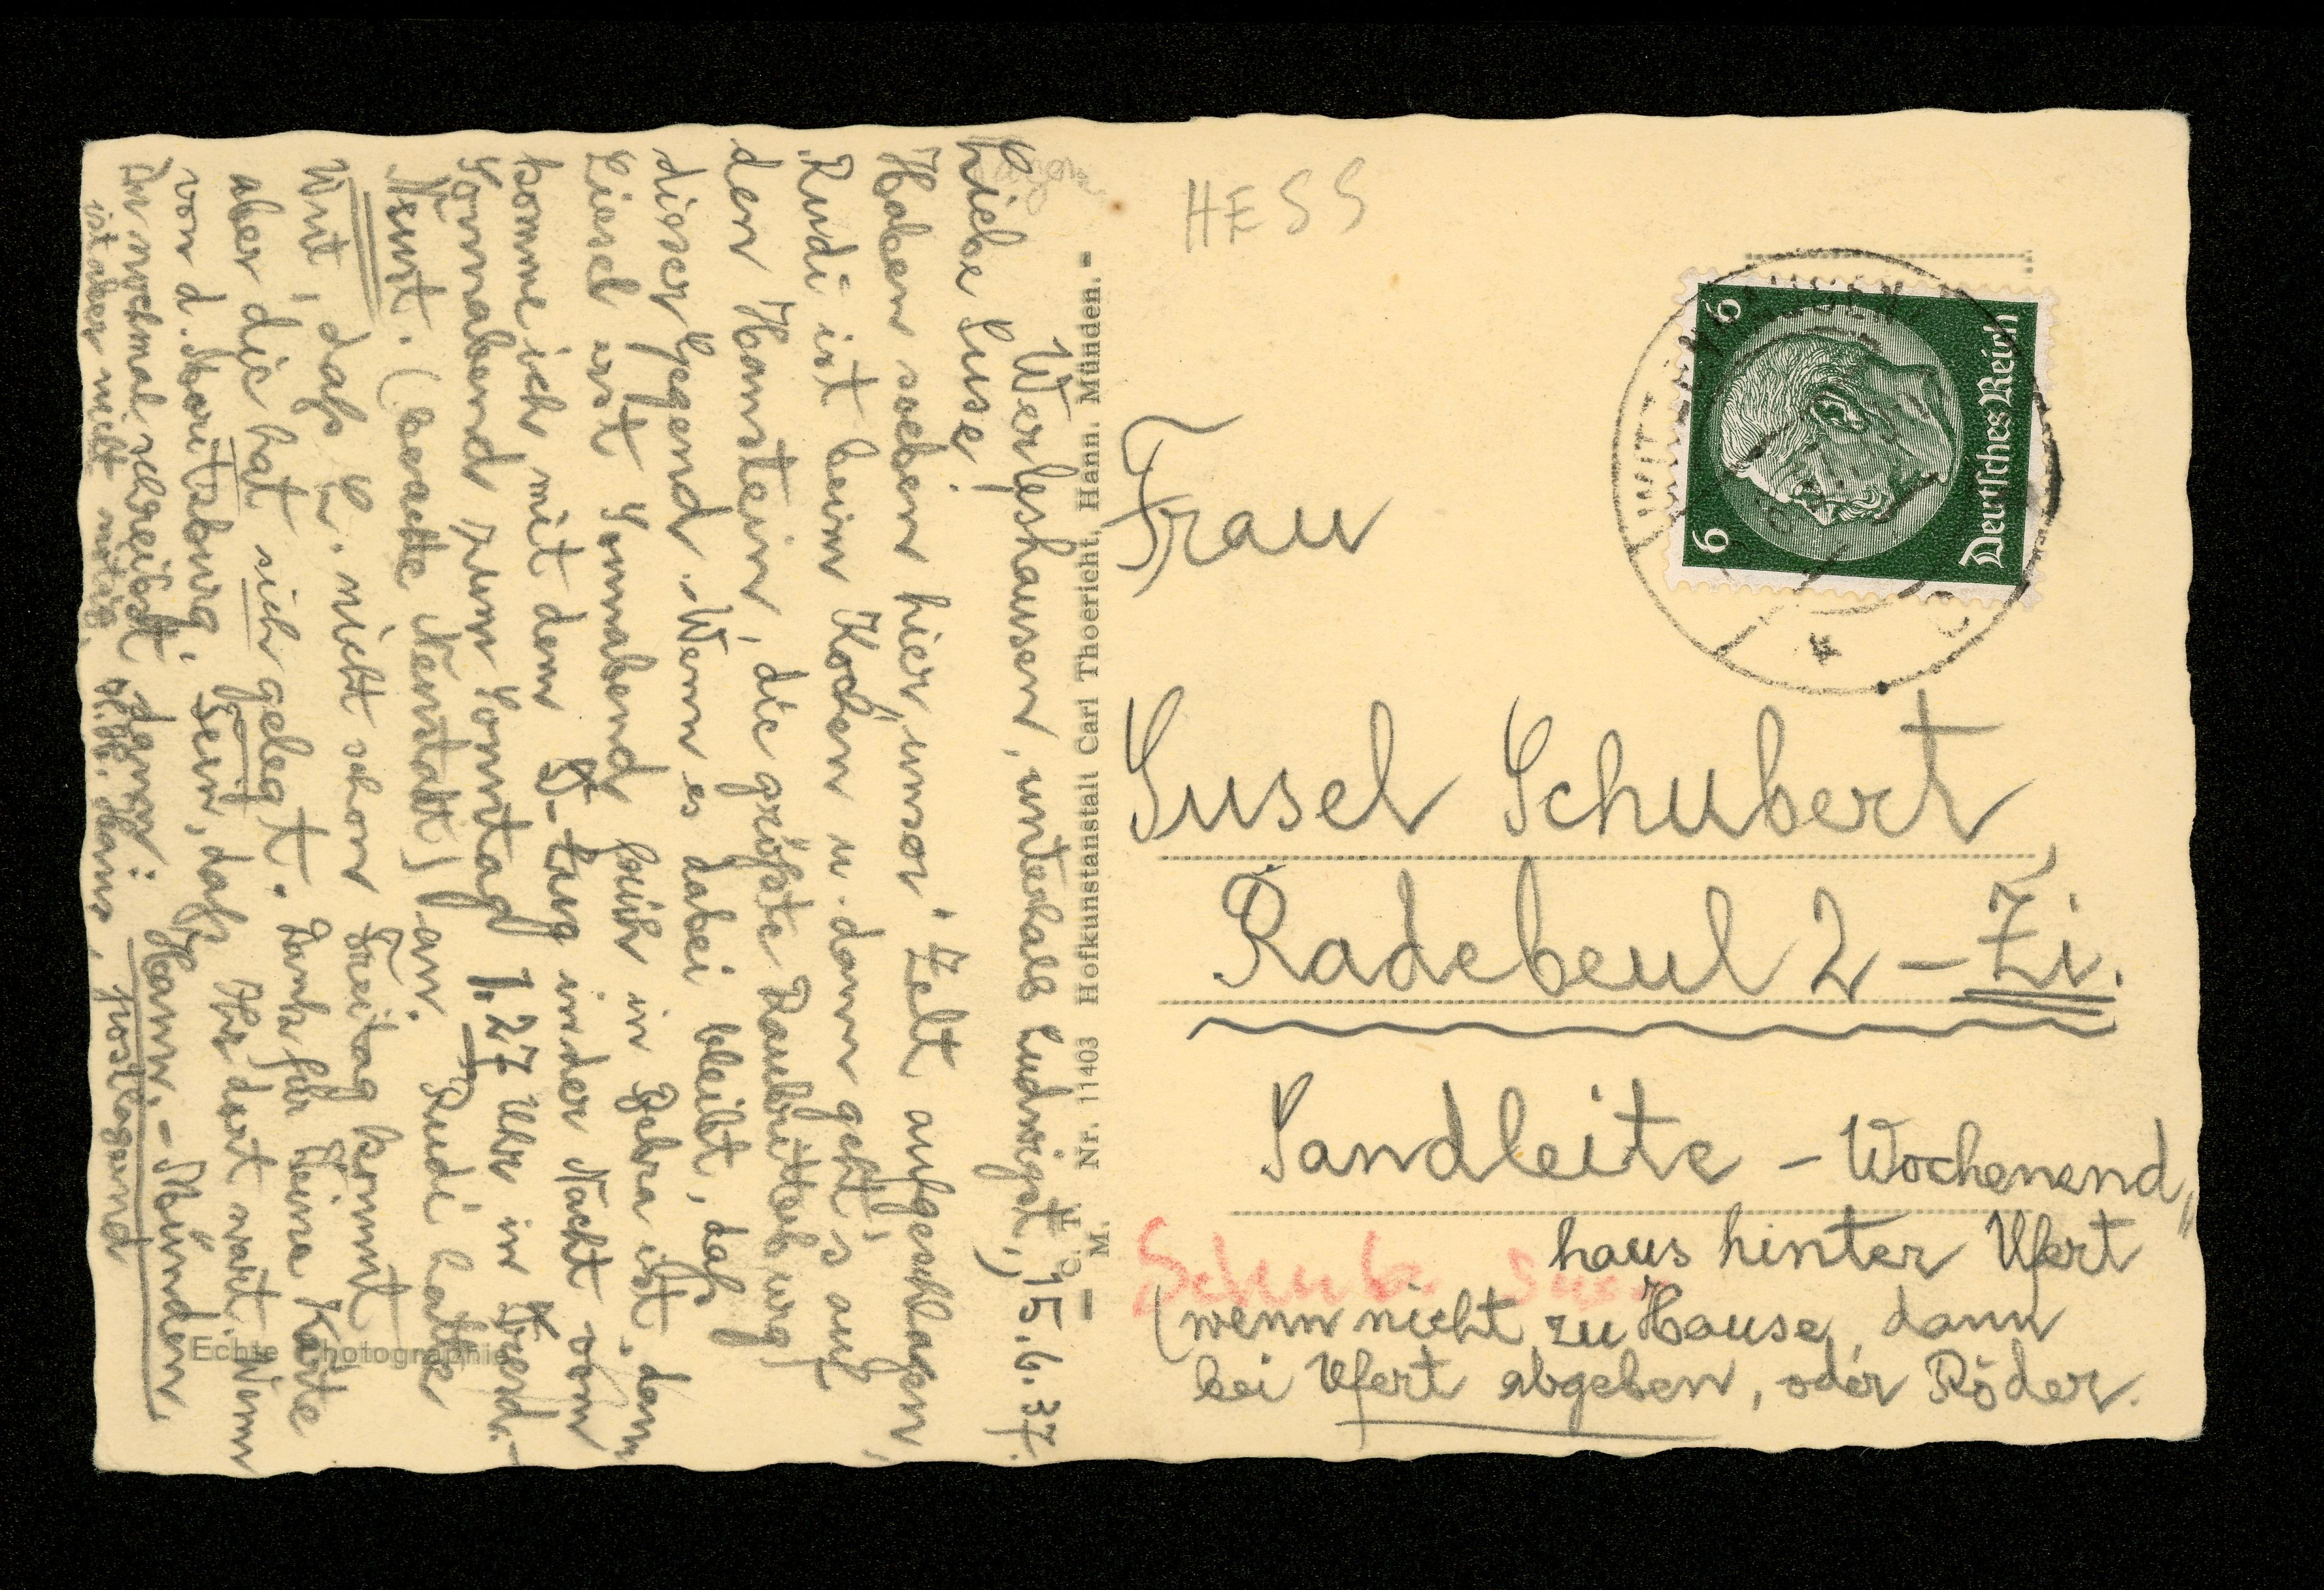 Werleshausen, unterhalb Ludwigst., 15.6.37.
Liebe Suse!
Haben soeben hier unser Zelt aufgeschlagen,
Rudi ist beim Kochen u. dann geht's auf
den Hanstein, die größte Raubritterburg
dieser Gegend. Wenn es dabei bleibt, daß
Liesel erst Sonnabend früh in Bebra ist, dann
komme ich mit dem Zug in der Nacht vom
Sonnabend zum Sonntag 1.27 Uhr in Dresd.-
Neust. (bravatte Neustadt) an. Rudi hatte
Wut, daß L. nicht schon Freitag kommt
aber die hat sich gelegt. Dank für Deine Karte
von d. Moritzburg. Fein, daß Ihr dort wart. Wenn
Du nochmal schreibst dann: Hann.-Münden,
ist aber nicht nötig. postlagernd
HESS
Deutsches Reich
6 6
Frau
Susel Schubert
Radebeul 2 – Zi.
Sandleite – Wochenend„
haus hinter Ufert
(wenn nicht zu Hause, dann
bei Ufert abgeben, oder Röder.
Schub. Sus.
C. T.
M.
Nr. 11403 Hofkunstanstalt Carl Thoericht, Hann. Münden.
Echte Photographie